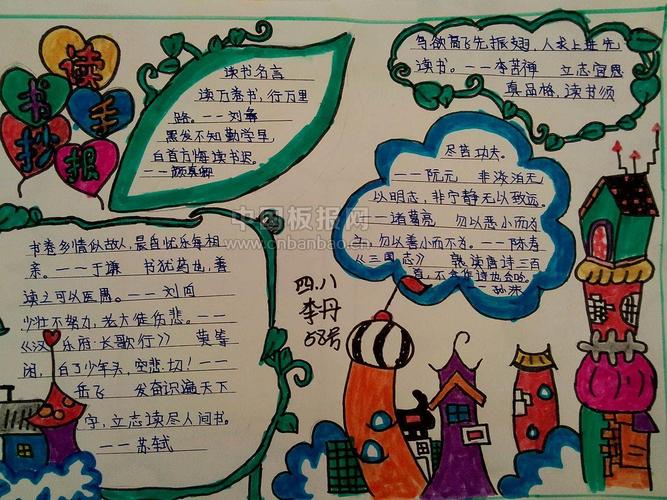 读书手抄报
读书名言
读万卷书，行万里
路。——刘彝
黑发不知勤学早，
白首方悔读书迟。
——颜真卿
鸟欲高飞先振翅，人求上进先
读书。——李苦禅 立志宜思
真品格，读书须
尽苦功夫。
——阮元 非淡泊无
以明志，非宁静无以致远。
——诸葛亮 勿以恶小而为
之，勿以善小而不为。——陈寿
《三国志》 熟读唐诗三百
首，不会作诗也会吟。
——孙洙
书卷多情似故人，晨昏忧乐每相
亲。——于谦 书犹药也，善
读之可以医愚。——刘向
少壮不努力，老大徒伤悲。——
《汉乐府·长歌行》 莫等
闲，白了少年头，空悲切！——
岳飞 发奋识遍天下
字，立志读尽人间书。
——苏轼
四.八
李丹
58号
中国板报网
www.cnbanbao.cn